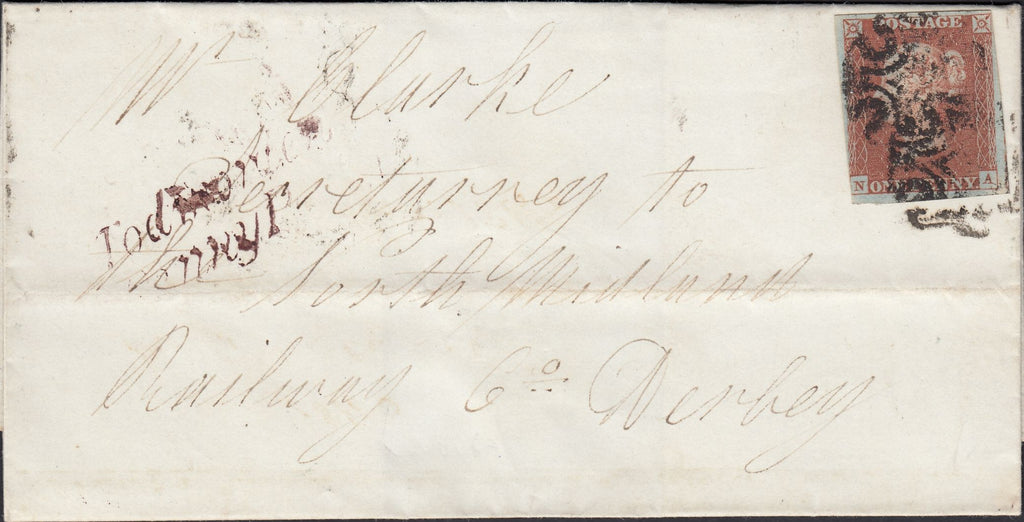 Mr Clarke
Secreturrey to
the North Midland
Railway Co Derbey
Todmorden
Penny Post
POSTAGE
N ONE PENNY A